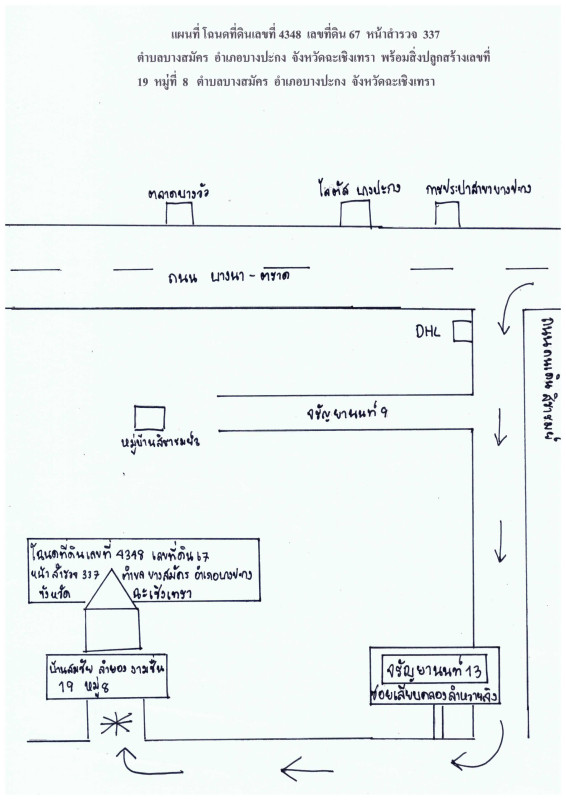 แผนที่ โฉนดที่ดินเลขที่ 4348 เลขที่ดิน 67 หน้าสำรวจ 337
ตำบลบางสมัคร อำเภอบางปะกง จังหวัดฉะเชิงเทรา พร้อมสิ่งปลูกสร้างเลขที่
19 หมู่ที่ 8 ตำบลบางสมัคร อำเภอบางปะกง จังหวัดฉะเชิงเทรา
ตลาดบางวัว
โลตัส บางปะกง
การประปาสาขาบางปะกง
ถนน บางนา - ตราด
DHL
จรัญยานนท์ 9
หมู่บ้าน
โฉนดที่ดินเลขที่ 4348 เลขที่ดิน 67
หน้าสำรวจ 337 ตำบล บางสมัคร อำเภอบางปะกง
จังหวัด ฉะเชิงเทรา
บ้านสมชัย ลำยอง งามชื่น
19 หมู่ 8
จรัญยานนท์ 13
ซอยเลียบคลอง